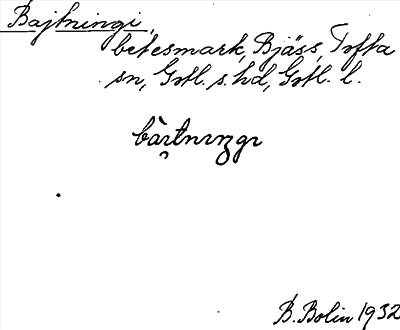 Bajtningi,
betesmark, Bjäss, Tofta
sn, Gotl. s. hd, Gotl. l.
bàɪtnɪŋgɪ
B. Bolin 1932